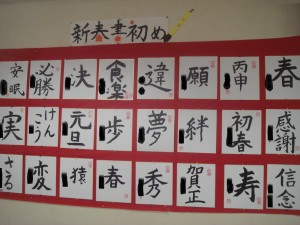 新春書初め
安眠
必勝
決
食楽
違
願
丙申
春
実
けんこう
元旦
歩
夢
絆
初春
感謝
さる
変
猿
春
秀
賀正
寿
信念